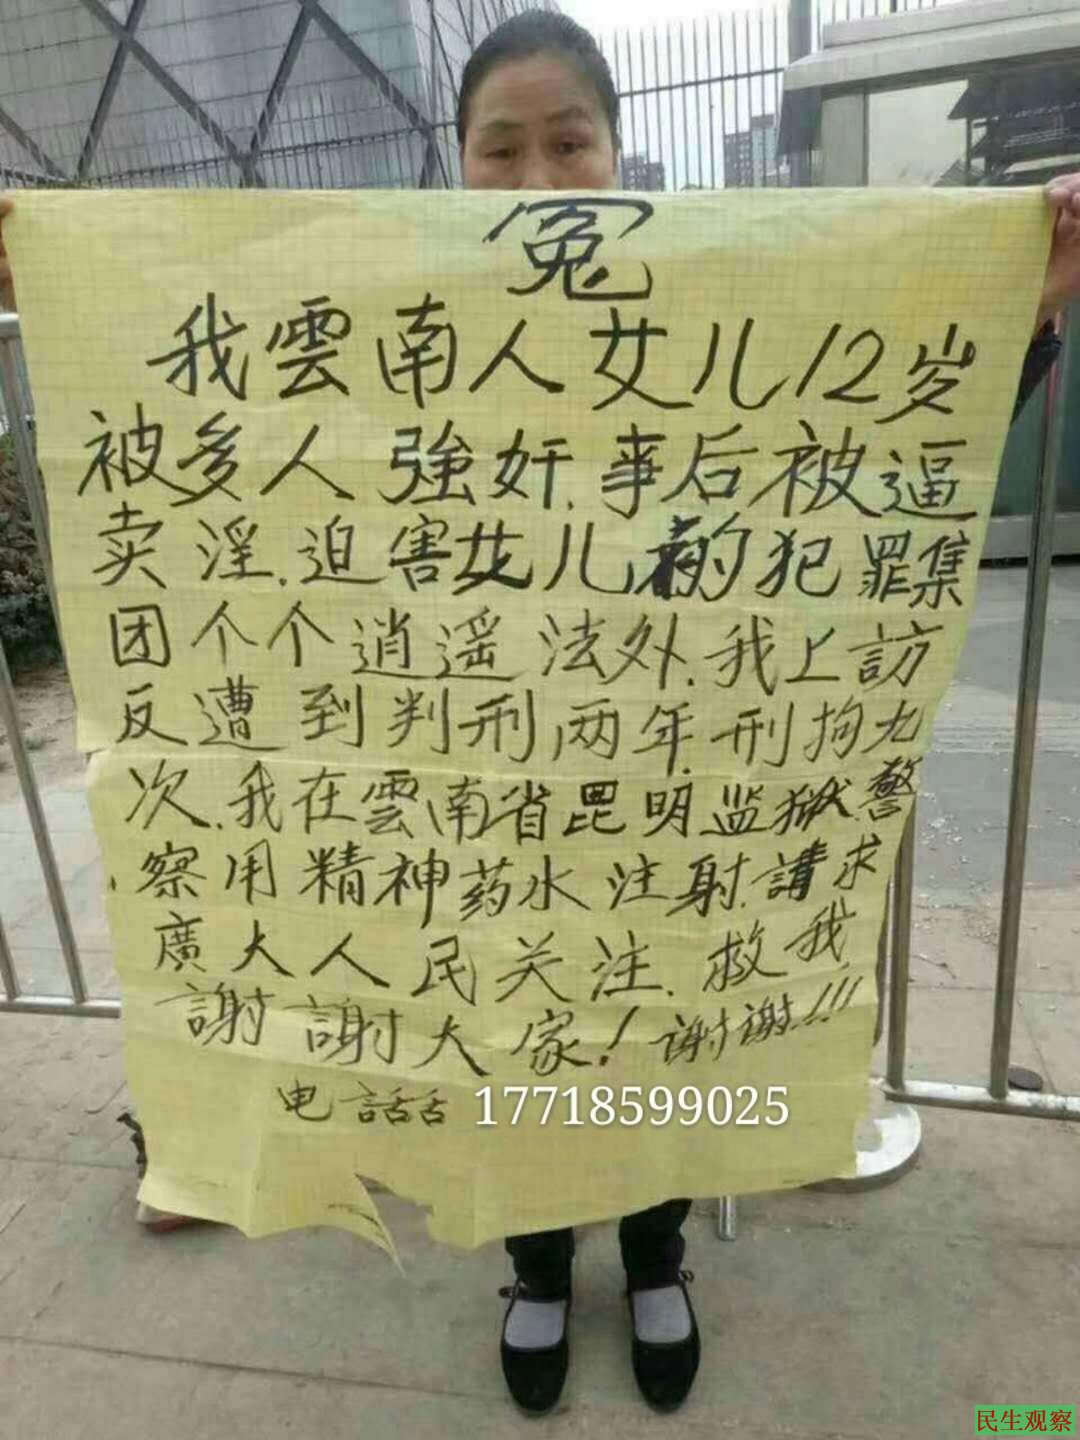 冤
我雲南人女儿12岁
被多人強奸.事后被逼
卖淫.迫害女儿的犯罪集
团个个逍遥法外.我上訪
反遭到判刑两年.刑拘九
次.我在雲南省昆明监狱警
察用精神药水注射.請求
廣大人民关注.救我
謝謝大家!谢谢!!!
电話 17718599025
民生观察